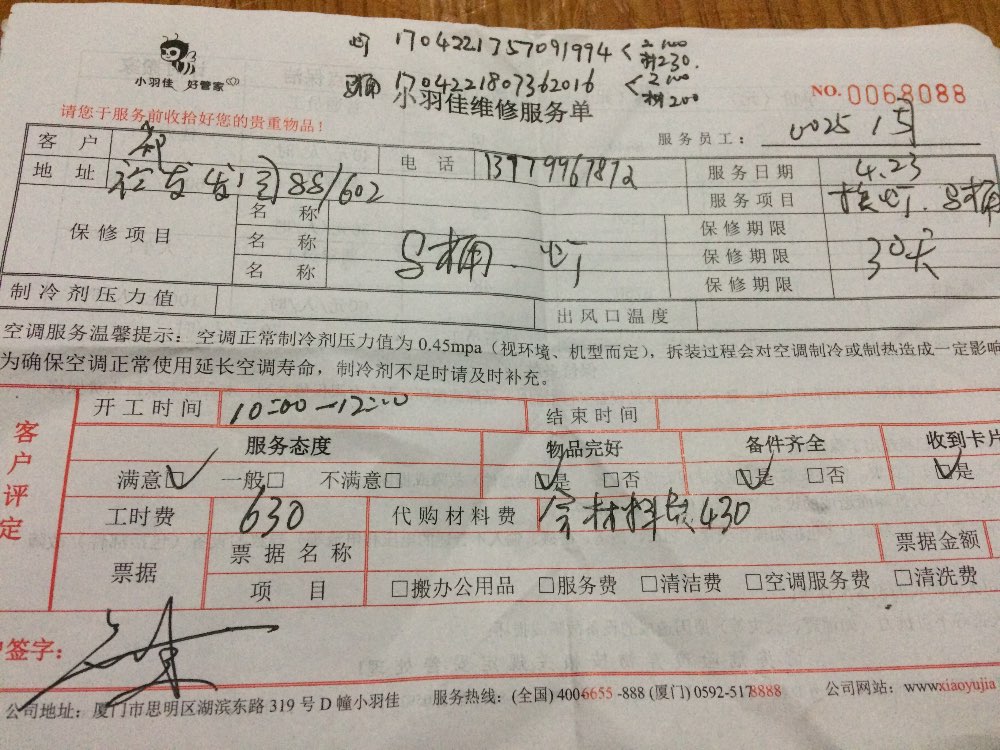 灯 1704221757091994 < 工100 料230.
1704221807362016 < 工100 料200
小羽佳 好管家
小羽佳维修服务单
NO. 0068088
请您于服务前收拾好您的贵重物品!
服务员工: 0025
客户 电话 服务日期 4.23
地址 88/602 服务项目 换灯.马桶
保修项目 名称 保修期限
名称 马桶.灯 保修期限 30天
名称 保修期限
制冷剂压力值 出风口温度
空调服务温馨提示: 空调正常制冷剂压力值为 0.45mpa (视环境、机型而定), 拆装过程会对空调制冷或制热造成一定影响
为确保空调正常使用延长空调寿命, 制冷剂不足时请及时补充。
客户评定
开工时间 10:00—12:00 结束时间
服务态度 物品完好 备件齐全 收到卡片
满意□ 一般□ 不满意□ □是 □否 □是 □否 □是
工时费 630 代购材料费 含材料费430
票据 票据名称 票据金额
项目 □搬办公用品 □服务费 □清洁费 □空调服务费 □清洗费
签字:
公司地址: 厦门市思明区湖滨东路 319 号 D 幢小羽佳 服务热线: (全国) 4006655-888 (厦门) 0592-5178888 公司网站: www.xiaoyujia